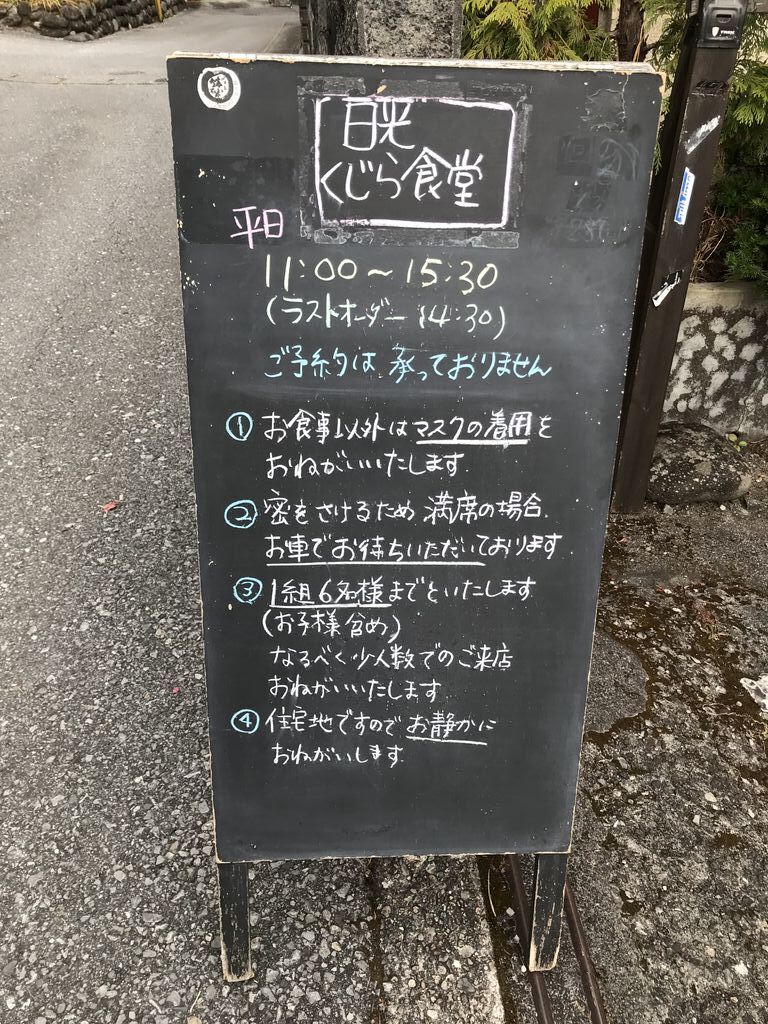 日光
くじら食堂
平日
11:00～15:30
(ラストオーダー 14:30)
ご予約は承っておりません
① お食事以外はマスクの着用を
おねがいいたします
② 密をさけるため 満席の場合、
お車でお待ちいただいております
③ 1組6名様までといたします
(お子様含め)
なるべく少人数でのご来店
おねがいいたします
④ 住宅地ですのでお静かに
おねがいします